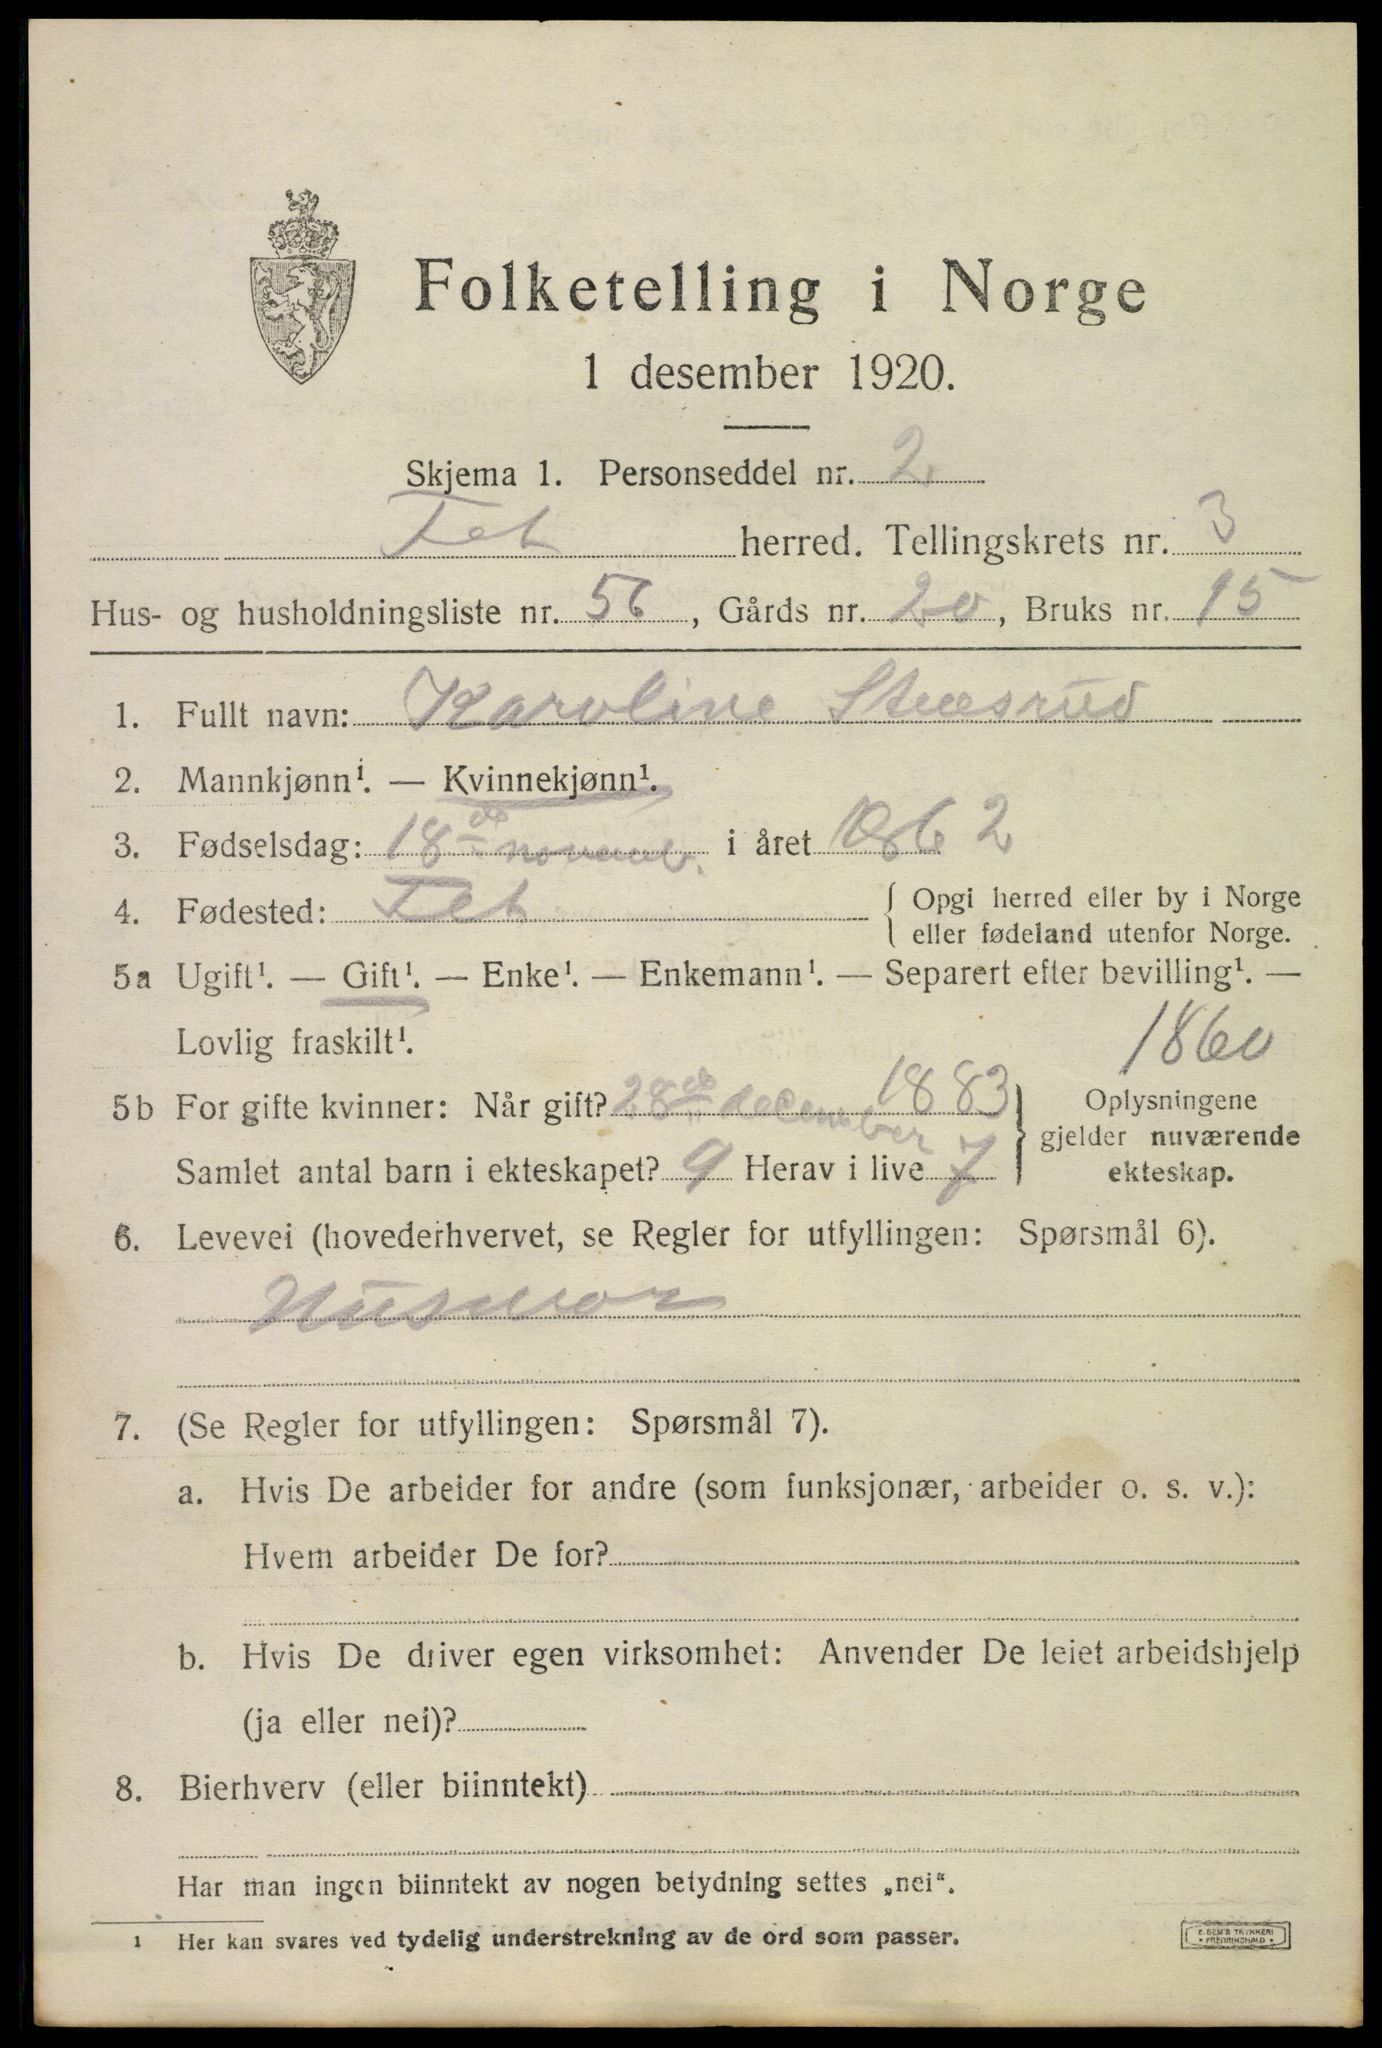 Folketelling i Norge
1 desember 1920.
Skjema 1. Personseddel nr. 2
Fet herred. Tellingskrets nr. 3
Hus- og husholdningsliste nr. 56, Gårds nr. 20, Bruks nr. 15
1. Fullt navn: Karoline
2. Mannkjønn¹. — Kvinnekjønn¹.
3. Fødselsdag: 18 novemb. i året 1862
4. Fødested: Fet { Opgi herred eller by i Norge
eller fødeland utenfor Norge.
5a Ugift¹. — Gift¹. — Enke¹. — Enkemann¹. — Separert efter bevilling¹. —
Lovlig fraskilt¹.
1860
5b For gifte kvinner: Når gift? 28 december 1883
Samlet antal barn i ekteskapet? 9 Herav i live 7
} Oplysningene
gjelder nuværende
ekteskap.
6. Levevei (hovederhvervet, se Regler for utfyllingen: Spørsmål 6).
Husmor
7. (Se Regler for utfyllingen: Spørsmål 7).
a. Hvis De arbeider for andre (som funksjonær, arbeider o. s. v.):
Hvem arbeider De for?
b. Hvis De driver egen virksomhet: Anvender De leiet arbeidshjelp
(ja eller nei)?
8. Bierhverv (eller biinntekt)
Har man ingen biinntekt av nogen betydning settes „nei“.
¹ Her kan svares ved tydelig understrekning av de ord som passer.
E. SEM'S TRYKKERI
FREDRIKSHALD